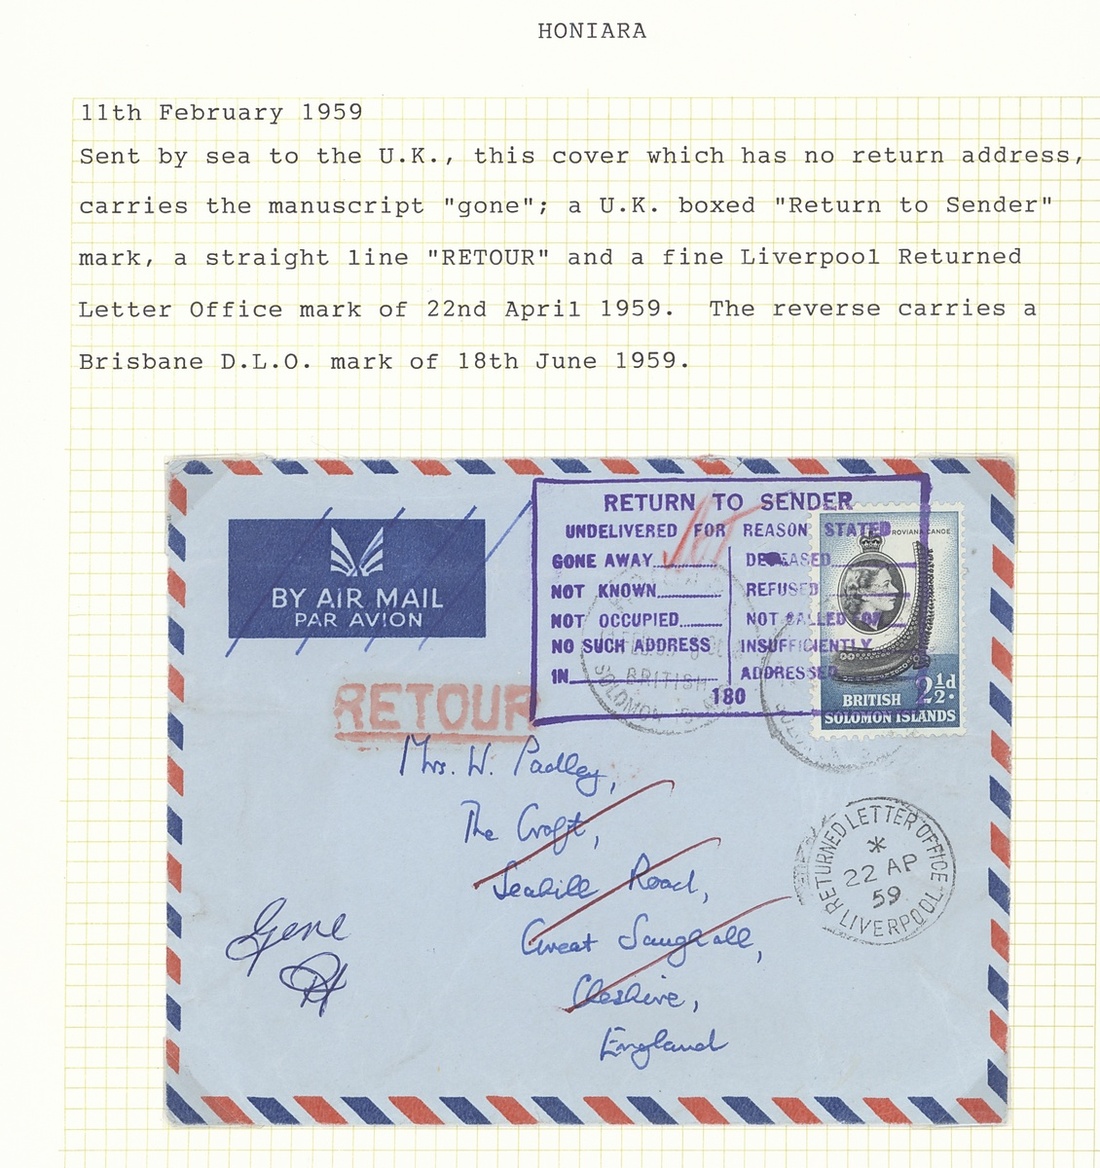 HONIARA
11th February 1959
Sent by sea to the U.K., this cover which has no return address,
carries the manuscript "gone"; a U.K. boxed "Return to Sender"
mark, a straight line "RETOUR" and a fine Liverpool Returned
Letter Office mark of 22nd April 1959. The reverse carries a
Brisbane D.L.O. mark of 18th June 1959.
BY AIR MAIL
PAR AVION
RETURN TO SENDER
UNDELIVERED FOR REASON STATED
GONE AWAY
NOT KNOWN
NOT OCCUPIED
NO SUCH ADDRESS
IN
DECEASED
REFUSED
NOT CALLED FOR
INSUFFICIENTLY
ADDRESSED
180
ROVIANA CANOE
2½d.
BRITISH
SOLOMON ISLANDS
BRITISH
SOLOMON IS
RETOUR
Mrs. W. Padley,
The Croft,
Seahill Road,
Great Saughall,
Cheshire,
England
Gone
RETURNED LETTER OFFICE
22 AP
59
LIVERPOOL